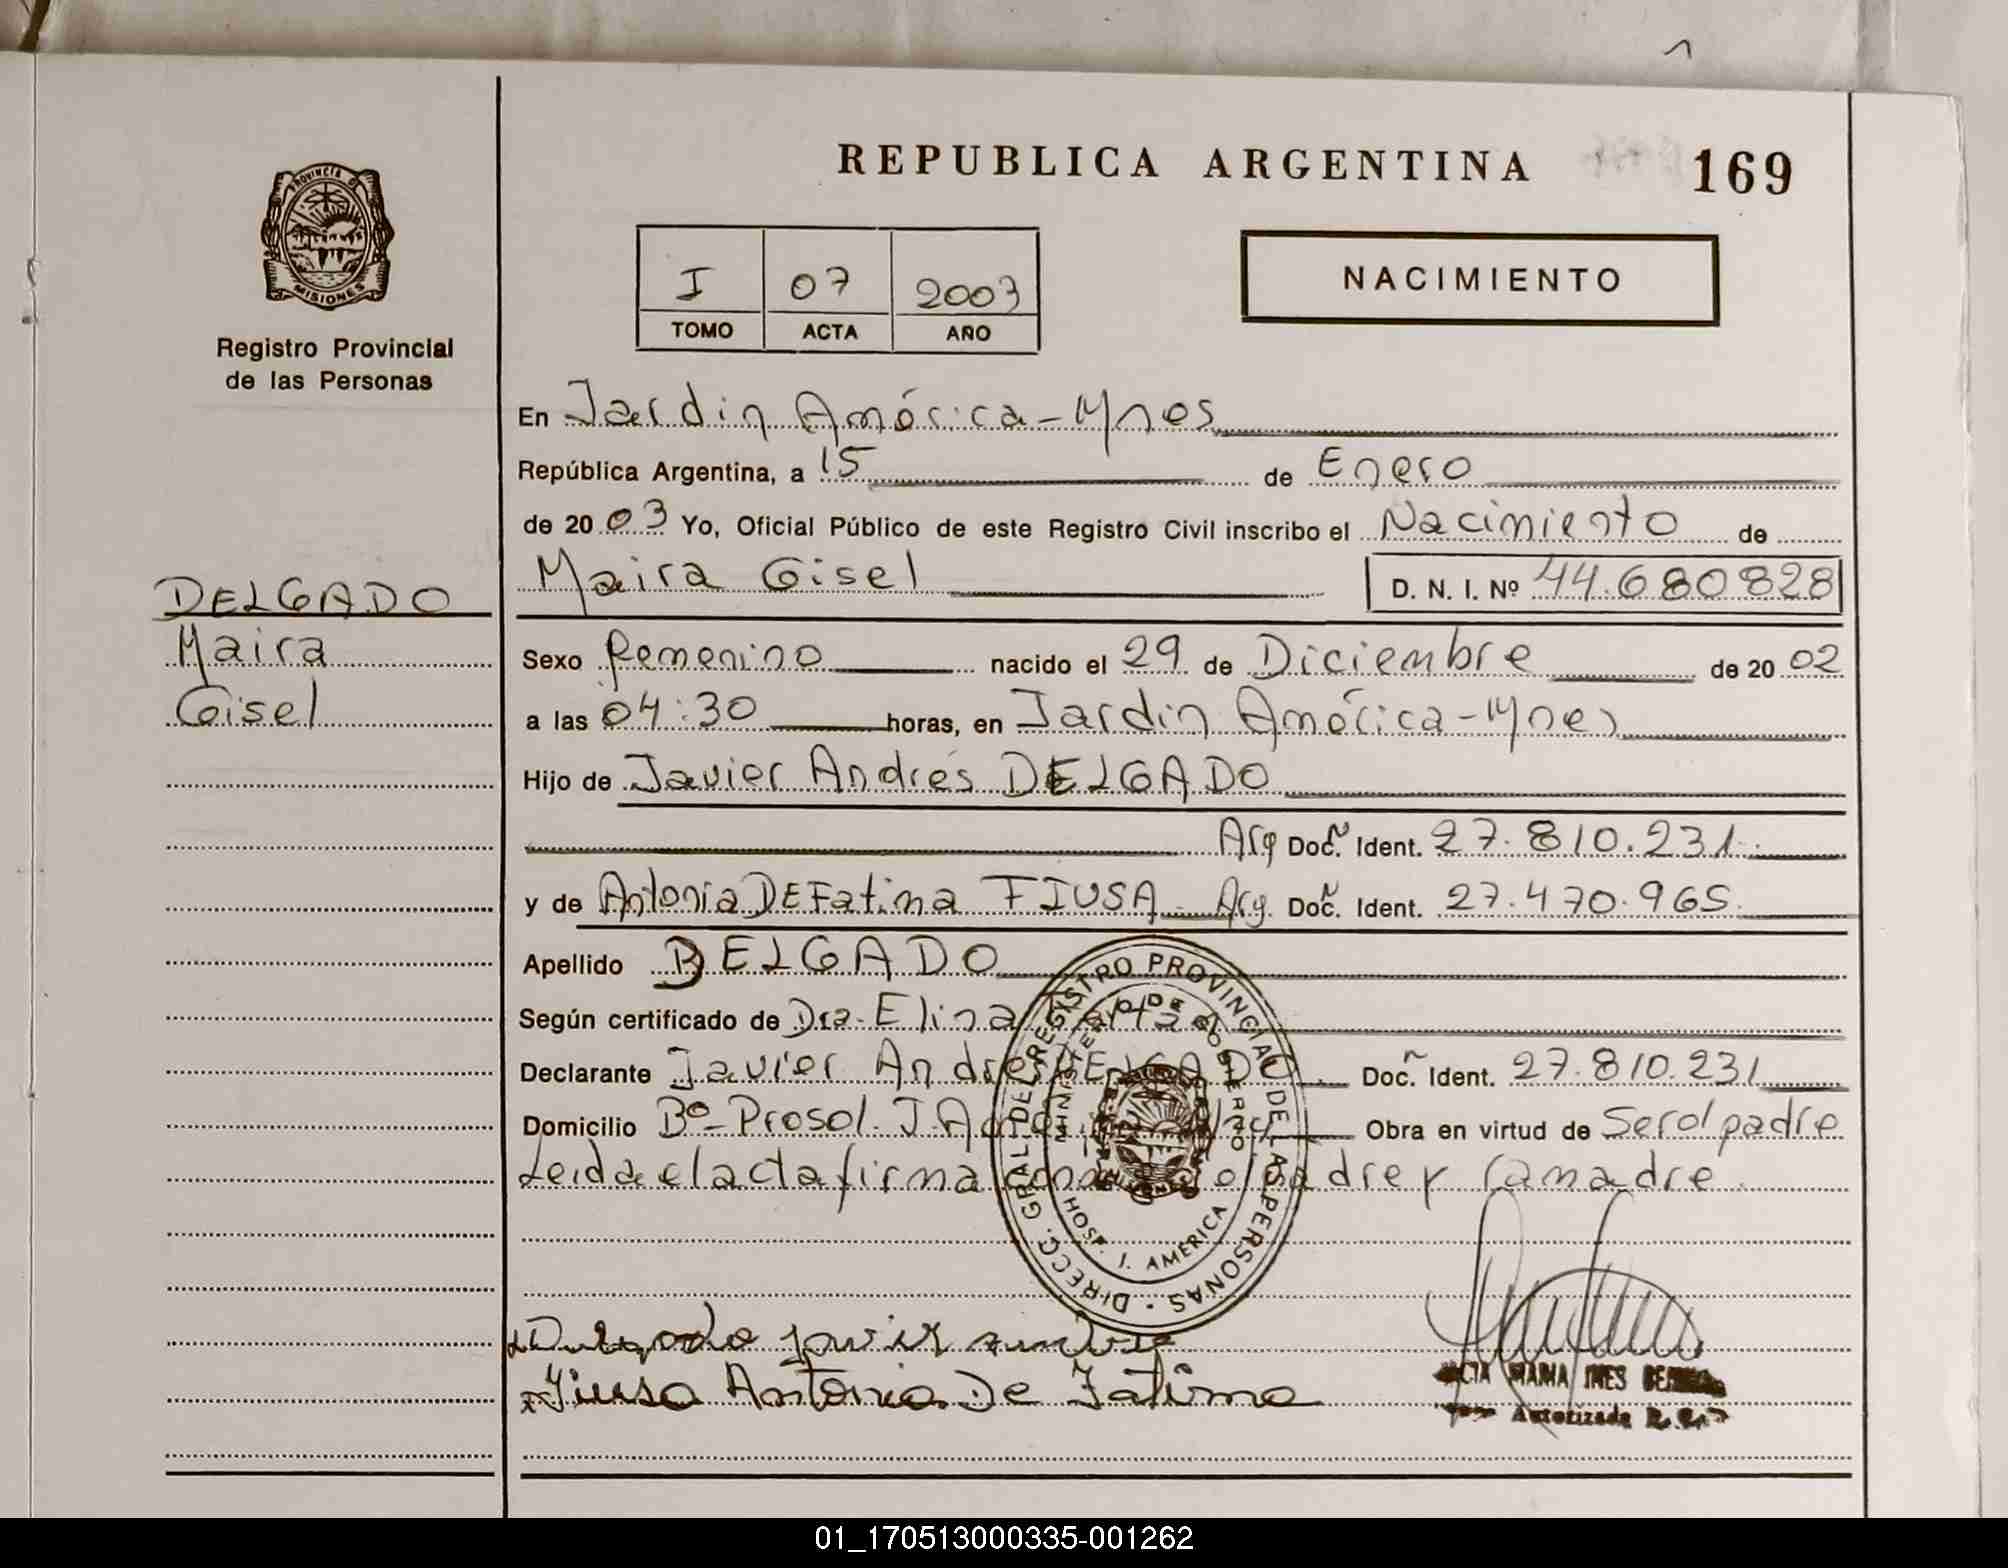 REPUBLICA ARGENTINA 169
PROVINCIA D
MISIONES
Registro Provincial
de las Personas
I 07 2003
TOMO ACTA AÑO
NACIMIENTO
En Jardin América - Mnes
República Argentina, a 15 de Enero
de 20 03 Yo, Oficial Público de este Registro Civil inscribo el Nacimiento de
Maira Gisel D. N. I. Nº 44.680828
DELGADO
Maira
Gisel
Sexo femenino nacido el 29 de Diciembre de 20 02
a las 04:30 horas, en Jardin América - Mnes
Hijo de Javier Andrés DELGADO
Arg Doc. Ident. 27.810.231.
y de Antonia DE Fatima FIUSA - Arg. Doc. Ident. 27.470.965.
Apellido DELGADO
Según certificado de Dra. Elina
Declarante Javier Andres DELGADO Doc. Ident. 27.810.231
Domicilio Bº - Prosol. J. Obra en virtud de Ser el padre
Leida el acta firma el padre y la madre.
DIRECC. GRAL DEL REGISTRO PROVINCIAL DE LAS PERSONAS
MINISTERIO DE GOBIERNO
HOSP. J. AMERICA
Delgado Javier
Fiusa Antonia De Fatima
MARIA INES
Autorizada
01_170513000335-001262